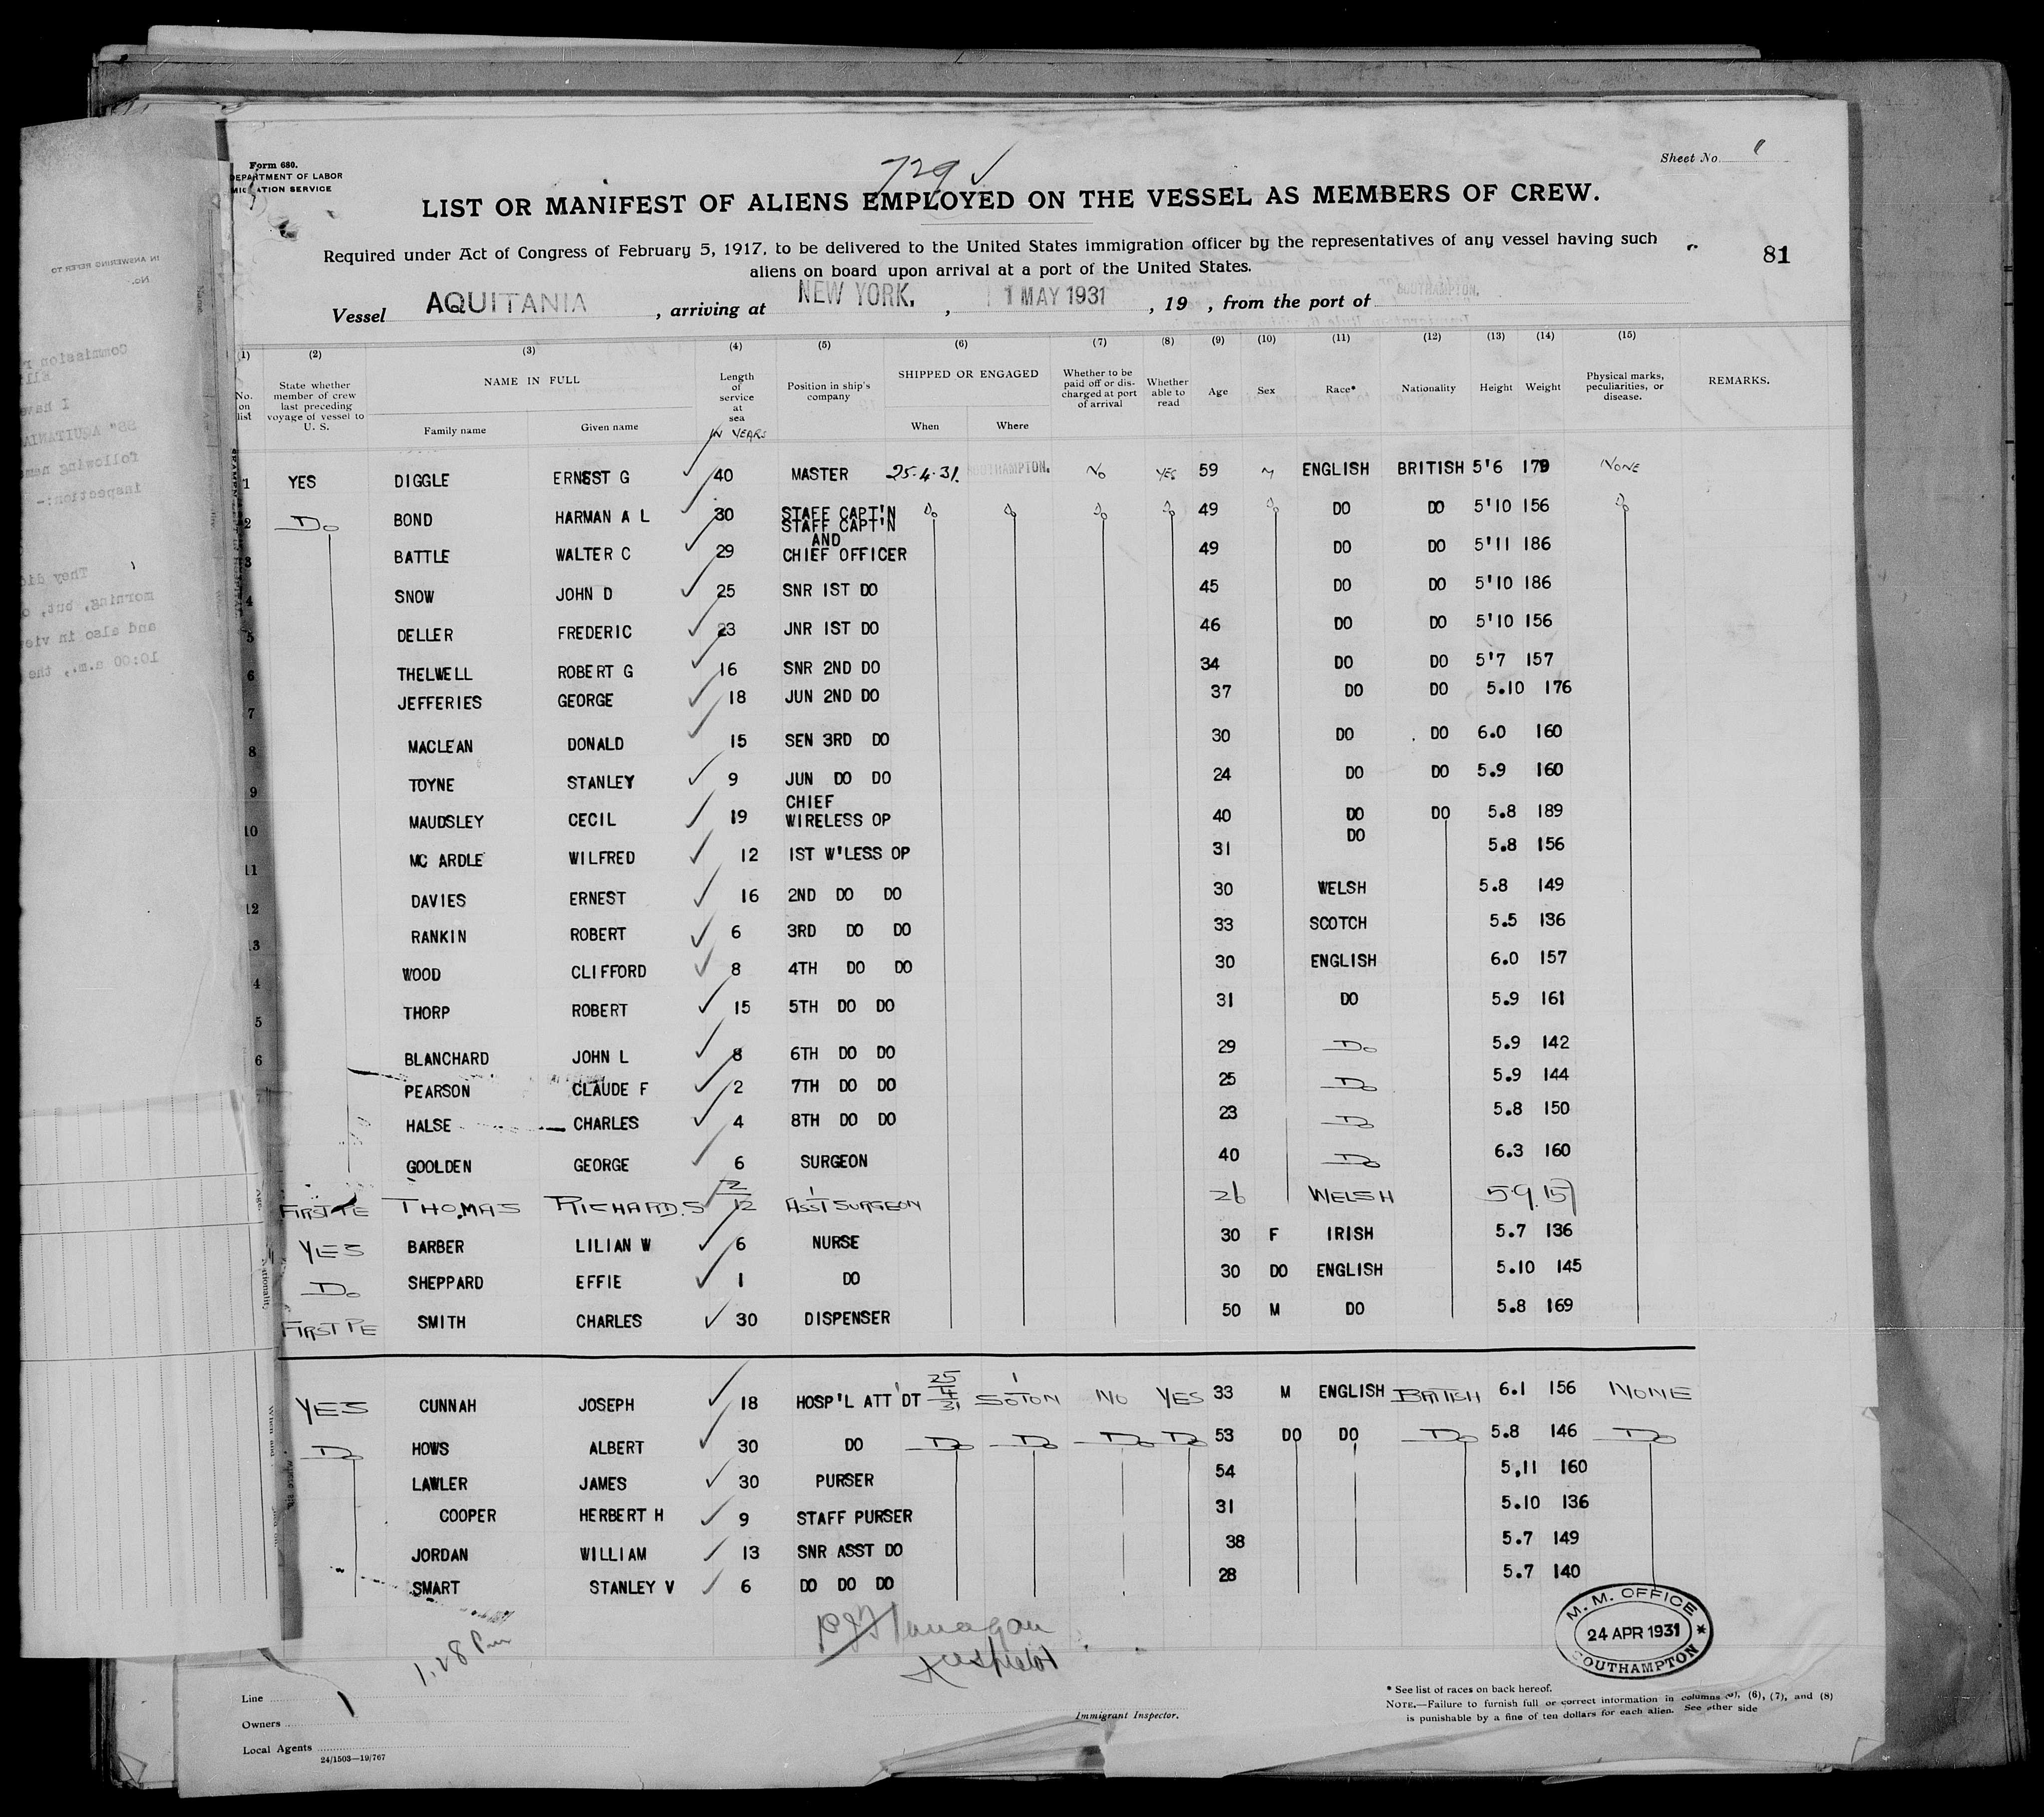 Form 680.
DEPARTMENT OF LABOR
729 ✓
Sheet No.
LIST OR MANIFEST OF ALIENS EMPLOYED ON THE VESSEL AS MEMBERS OF CREW.
Required under Act of Congress of February 5, 1917, to be delivered to the United States immigration officer by the representatives of any vessel having such
aliens on board upon arrival at a port of the United States.
81
Vessel AQUITANIA , arriving at NEW YORK. , 1 MAY 1931 , 19 , from the port of SOUTHAMPTON.
(1) (2) (3) (4) (5) (6) (7) (8) (9) (10) (11) (12) (13) (14) (15)
No. on list State whether member of crew last preceding voyage of vessel to U. S. NAME IN FULL Family name Given name Length of service at sea IN YEARS Position in ship's company SHIPPED OR ENGAGED When Where Whether to be paid off or discharged at port of arrival Whether able to read Age Sex Race* Nationality Height Weight Physical marks, peculiarities, or disease. REMARKS.
1 YES DIGGLE ERNEST G ✓ 40 MASTER 25.4.31. SOUTHAMPTON. No YES 59 M ENGLISH BRITISH 5'6 179 NONE
2 Do BOND HARMAN A L ✓ 30 STAFF CAPT'N Do Do Do Do 49 Do DO DO 5'10 156 Do
3 BATTLE WALTER C ✓ 29 STAFF CAPT'N AND CHIEF OFFICER 49 DO DO 5'11 186
4 SNOW JOHN D ✓ 25 SNR 1ST DO 45 DO DO 5'10 186
5 DELLER FREDERIC ✓ 23 JNR 1ST DO 46 DO DO 5'10 156
6 THELWELL ROBERT G ✓ 16 SNR 2ND DO 34 DO DO 5'7 157
7 JEFFERIES GEORGE ✓ 18 JUN 2ND DO 37 DO DO 5.10 176
8 MACLEAN DONALD ✓ 15 SEN 3RD DO 30 DO DO 6.0 160
9 TOYNE STANLEY ✓ 9 JUN DO DO 24 DO DO 5.9 160
10 MAUDSLEY CECIL ✓ 19 CHIEF WIRELESS OP 40 DO DO 5.8 189
11 MC ARDLE WILFRED ✓ 12 1ST W'LESS OP 31 DO 5.8 156
12 DAVIES ERNEST ✓ 16 2ND DO DO 30 WELSH 5.8 149
3 RANKIN ROBERT ✓ 6 3RD DO DO 33 SCOTCH 5.5 136
4 WOOD CLIFFORD ✓ 8 4TH DO DO 30 ENGLISH 6.0 157
5 THORP ROBERT ✓ 15 5TH DO DO 31 DO 5.9 161
6 BLANCHARD JOHN L ✓ 8 6TH DO DO 29 Do 5.9 142
7 PEARSON CLAUDE F ✓ 2 7TH DO DO 25 Do 5.9 144
HALSE CHARLES ✓ 4 8TH DO DO 23 Do 5.8 150
GOOLDEN GEORGE ✓ 6 SURGEON 40 Do 6.3 160
THOMAS RICHARD.S 2/12 ASST SURGEON 26 WELSH 5.9. 157
YES BARBER LILIAN W ✓ 6 NURSE 30 F IRISH 5.7 136
Do SHEPPARD EFFIE ✓ 1 DO 30 DO ENGLISH 5.10 145
FIRST PE SMITH CHARLES ✓ 30 DISPENSER 50 M DO 5.8 169
YES CUNNAH JOSEPH ✓ 18 HOSP'L ATT'DT 25/4/31 SOTON NO YES 33 M ENGLISH BRITISH 6.1 156 NONE
Do HOWS ALBERT ✓ 30 DO Do Do Do Do 53 DO DO Do 5.8 146 Do
LAWLER JAMES ✓ 30 PURSER 54 5,11 160
COOPER HERBERT H ✓ 9 STAFF PURSER 31 5.10 136
JORDAN WILLIAM ✓ 13 SNR ASST DO 38 5.7 149
SMART STANLEY V ✓ 6 DO DO DO 28 5.7 140
M. M. OFFICE
24 APR 1931
SOUTHAMPTON
1.28 Pm
Line
Owners
Local Agents
24/1503—19/767
Immigrant Inspector.
* See list of races on back hereof.
NOTE.—Failure to furnish full or correct information in columns (6), (7), and (8)
is punishable by a fine of ten dollars for each alien. See other side